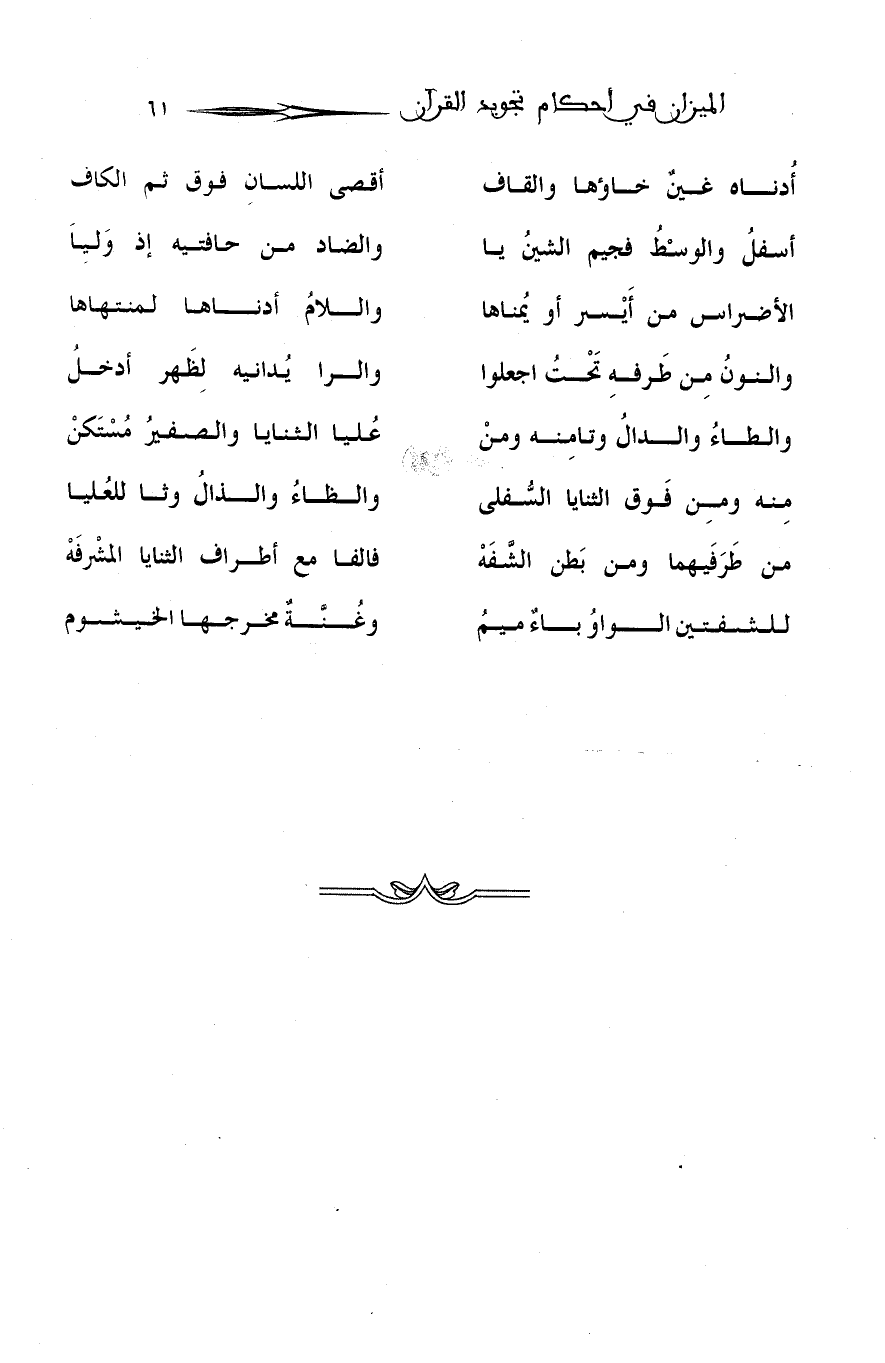 الميزان في أحكام تجويد القرآن ٦١
أُدناه غينٌ خاؤها والقاف أقصى اللسانِ فوق ثم الكاف
أسفلُ والوسْطُ فجيم الشينُ يا والضاد من حافتيه إذ وَليَا
الأضراس من أَيْسر أو يُمناها واللامُ أدناها لمنتهاها
والنونُ مِن طَرفهِ تَحْتُ اجعلوا والرا يُدانيه لظَهرٍ أدخلُ
والطاءُ والدالُ وتامِنه ومنْ عُليا الثنايا والصفيرُ مُسْتَكنْ
مِنه ومِن فَوق الثنايا السُّفلى والظاءُ والذالُ وثا للعُليا
من طَرَفَيهما ومن بَطن الشَّفَهْ فالفا مع أطراف الثنايا المشْرفَهْ
للشفتين الواوُ باءٌ ميمُ وغُنَّةٌ مخرجها الخيشوم